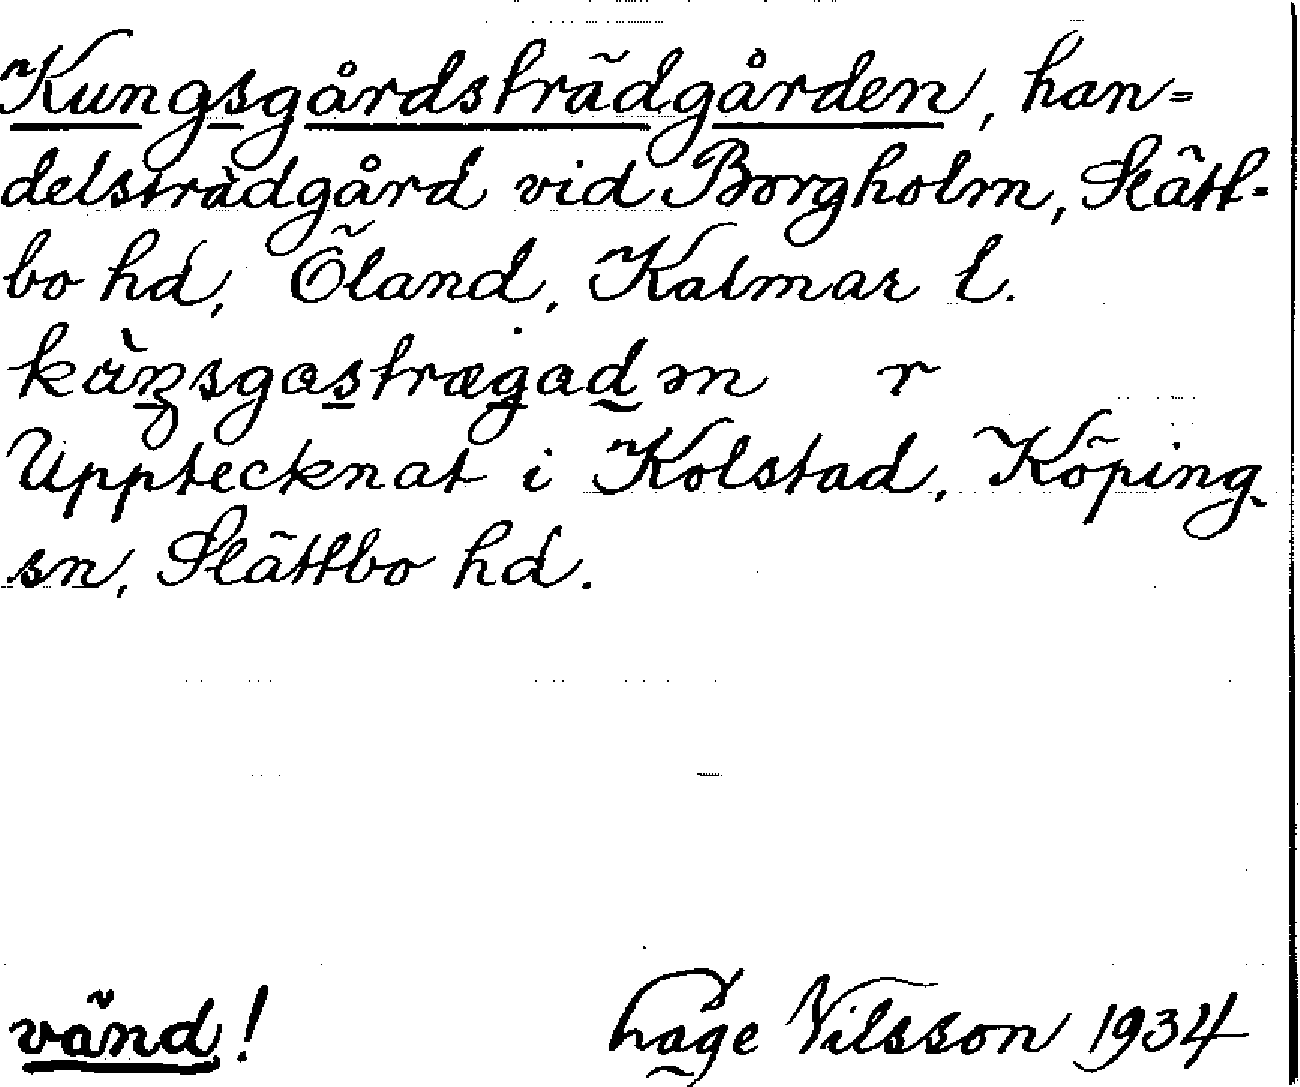 Kungsgårdsträdgården, han=
delsträdgård vid Borgholm, Slätt-
bo hd, Öland, Kalmar l.
r
Upptecknat i Kolstad, Köping
sn, Slättbo hd.
vänd! Hage Nilsson 1934